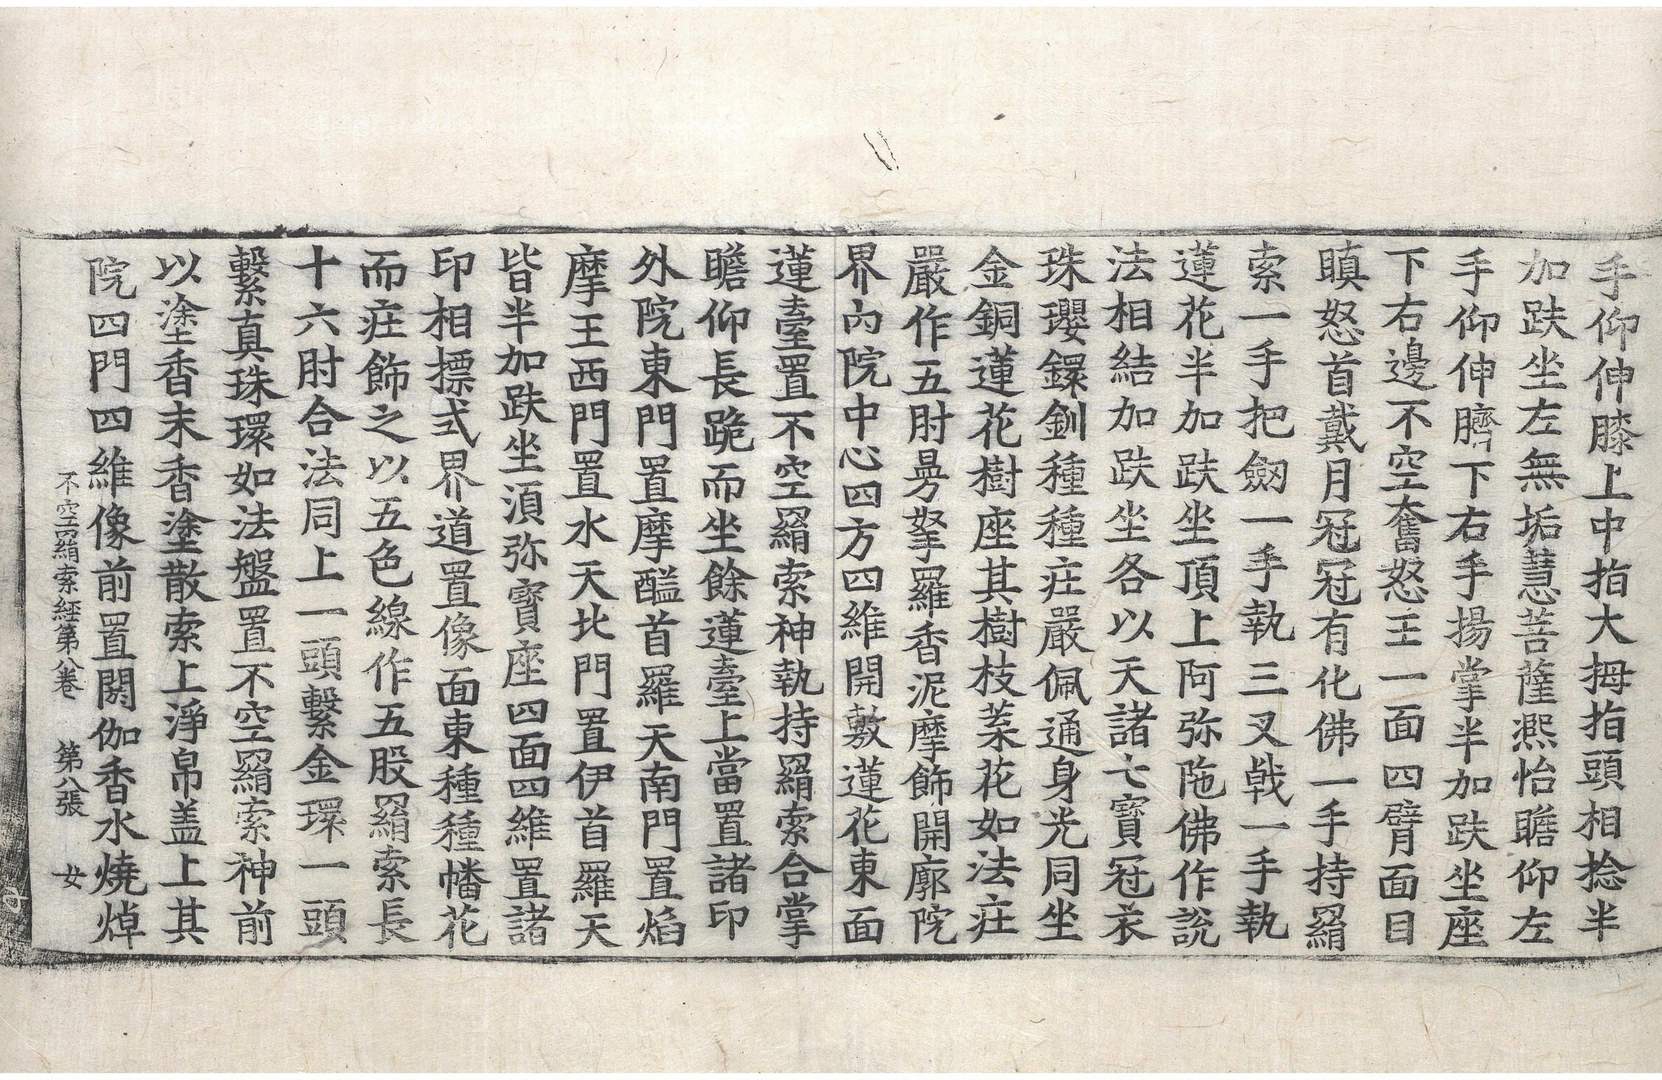 手仰伸膝上中指大拇指頭相捻半
加趺坐左無垢慧菩薩熈怡瞻仰左
手仰伸臍下右手揚掌半加趺坐座
下右邊不空奮怒王一面四臂面目
瞋怒首戴月冠冠有化佛一手持羂
索一手把劔一手執三叉戟一手執
蓮花半加趺坐頂上阿弥陁佛作說
法相結加趺坐各以天諸七寶冠衣
珠瓔鐶釧種種庄嚴佩通身光同坐
金銅蓮花樹座其樹枝菓花如法庄
嚴作五肘曼拏羅香泥摩飾開廓院
界内院中心四方四維開敷蓮花東面
蓮臺置不空羂索神執持羂索合掌
瞻仰長跪而坐餘蓮臺上當置諸印
外院東門置摩醯首羅天南門置焰
摩王西門置水天北門置伊首羅天
皆半加趺坐湏弥寶座四面四維置諸
印相摽式界道置像面東種種幡花
而庄飾之以五色線作五股羂索長
十六肘合法同上一頭繫金環一頭
繫真珠環如法盤置不空羂索神前
以塗香末香塗散索上淨帛盖上其
院四門四維像前置閼伽香水燒焯
不空羂索經第八卷 第八張 女